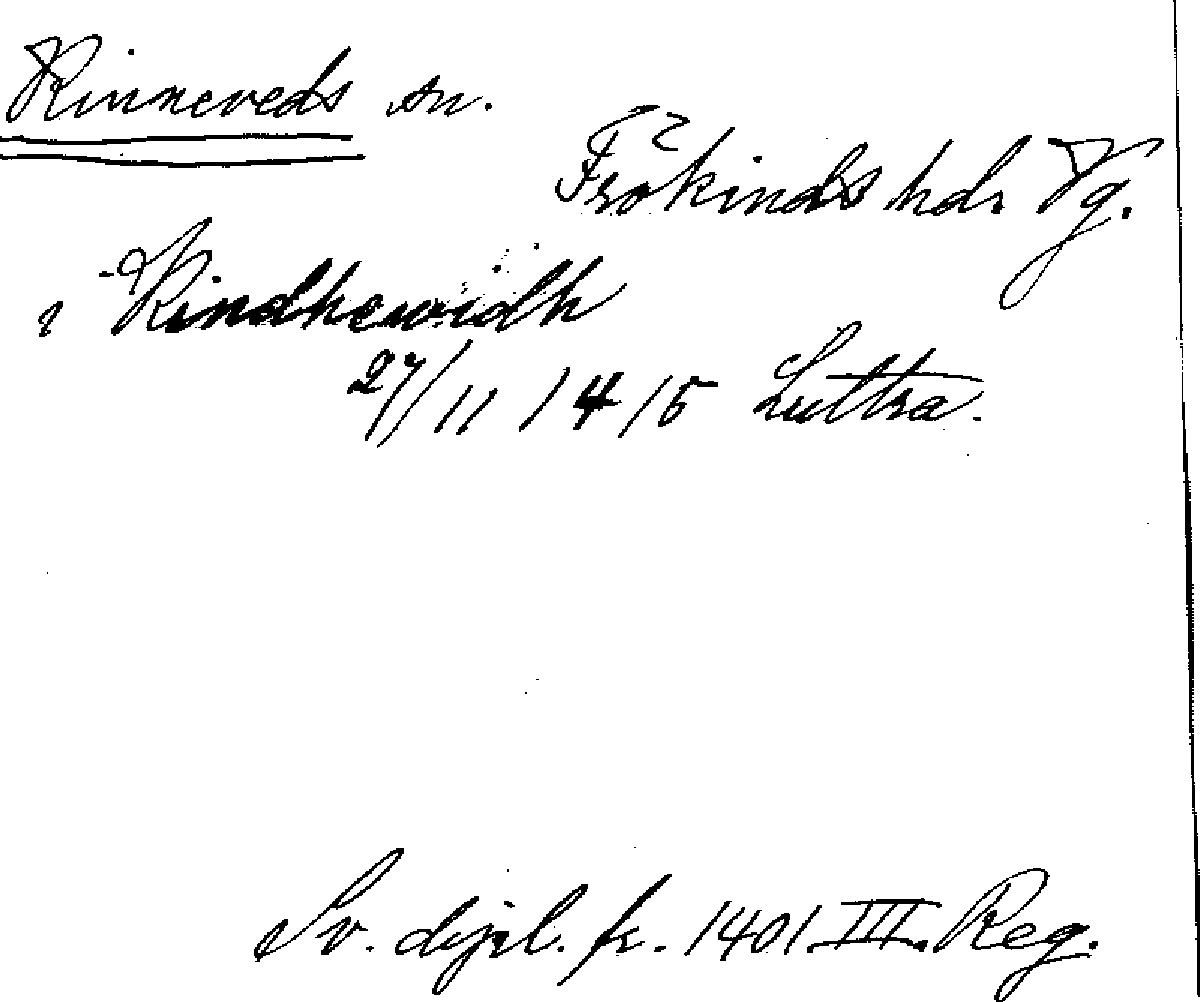 Kinneveds sn.
Frökinds hd. Vg.
i Kindhewidh
27/11 1415 Luttra.
Sv. dipl. fr. 1401 III. Reg.